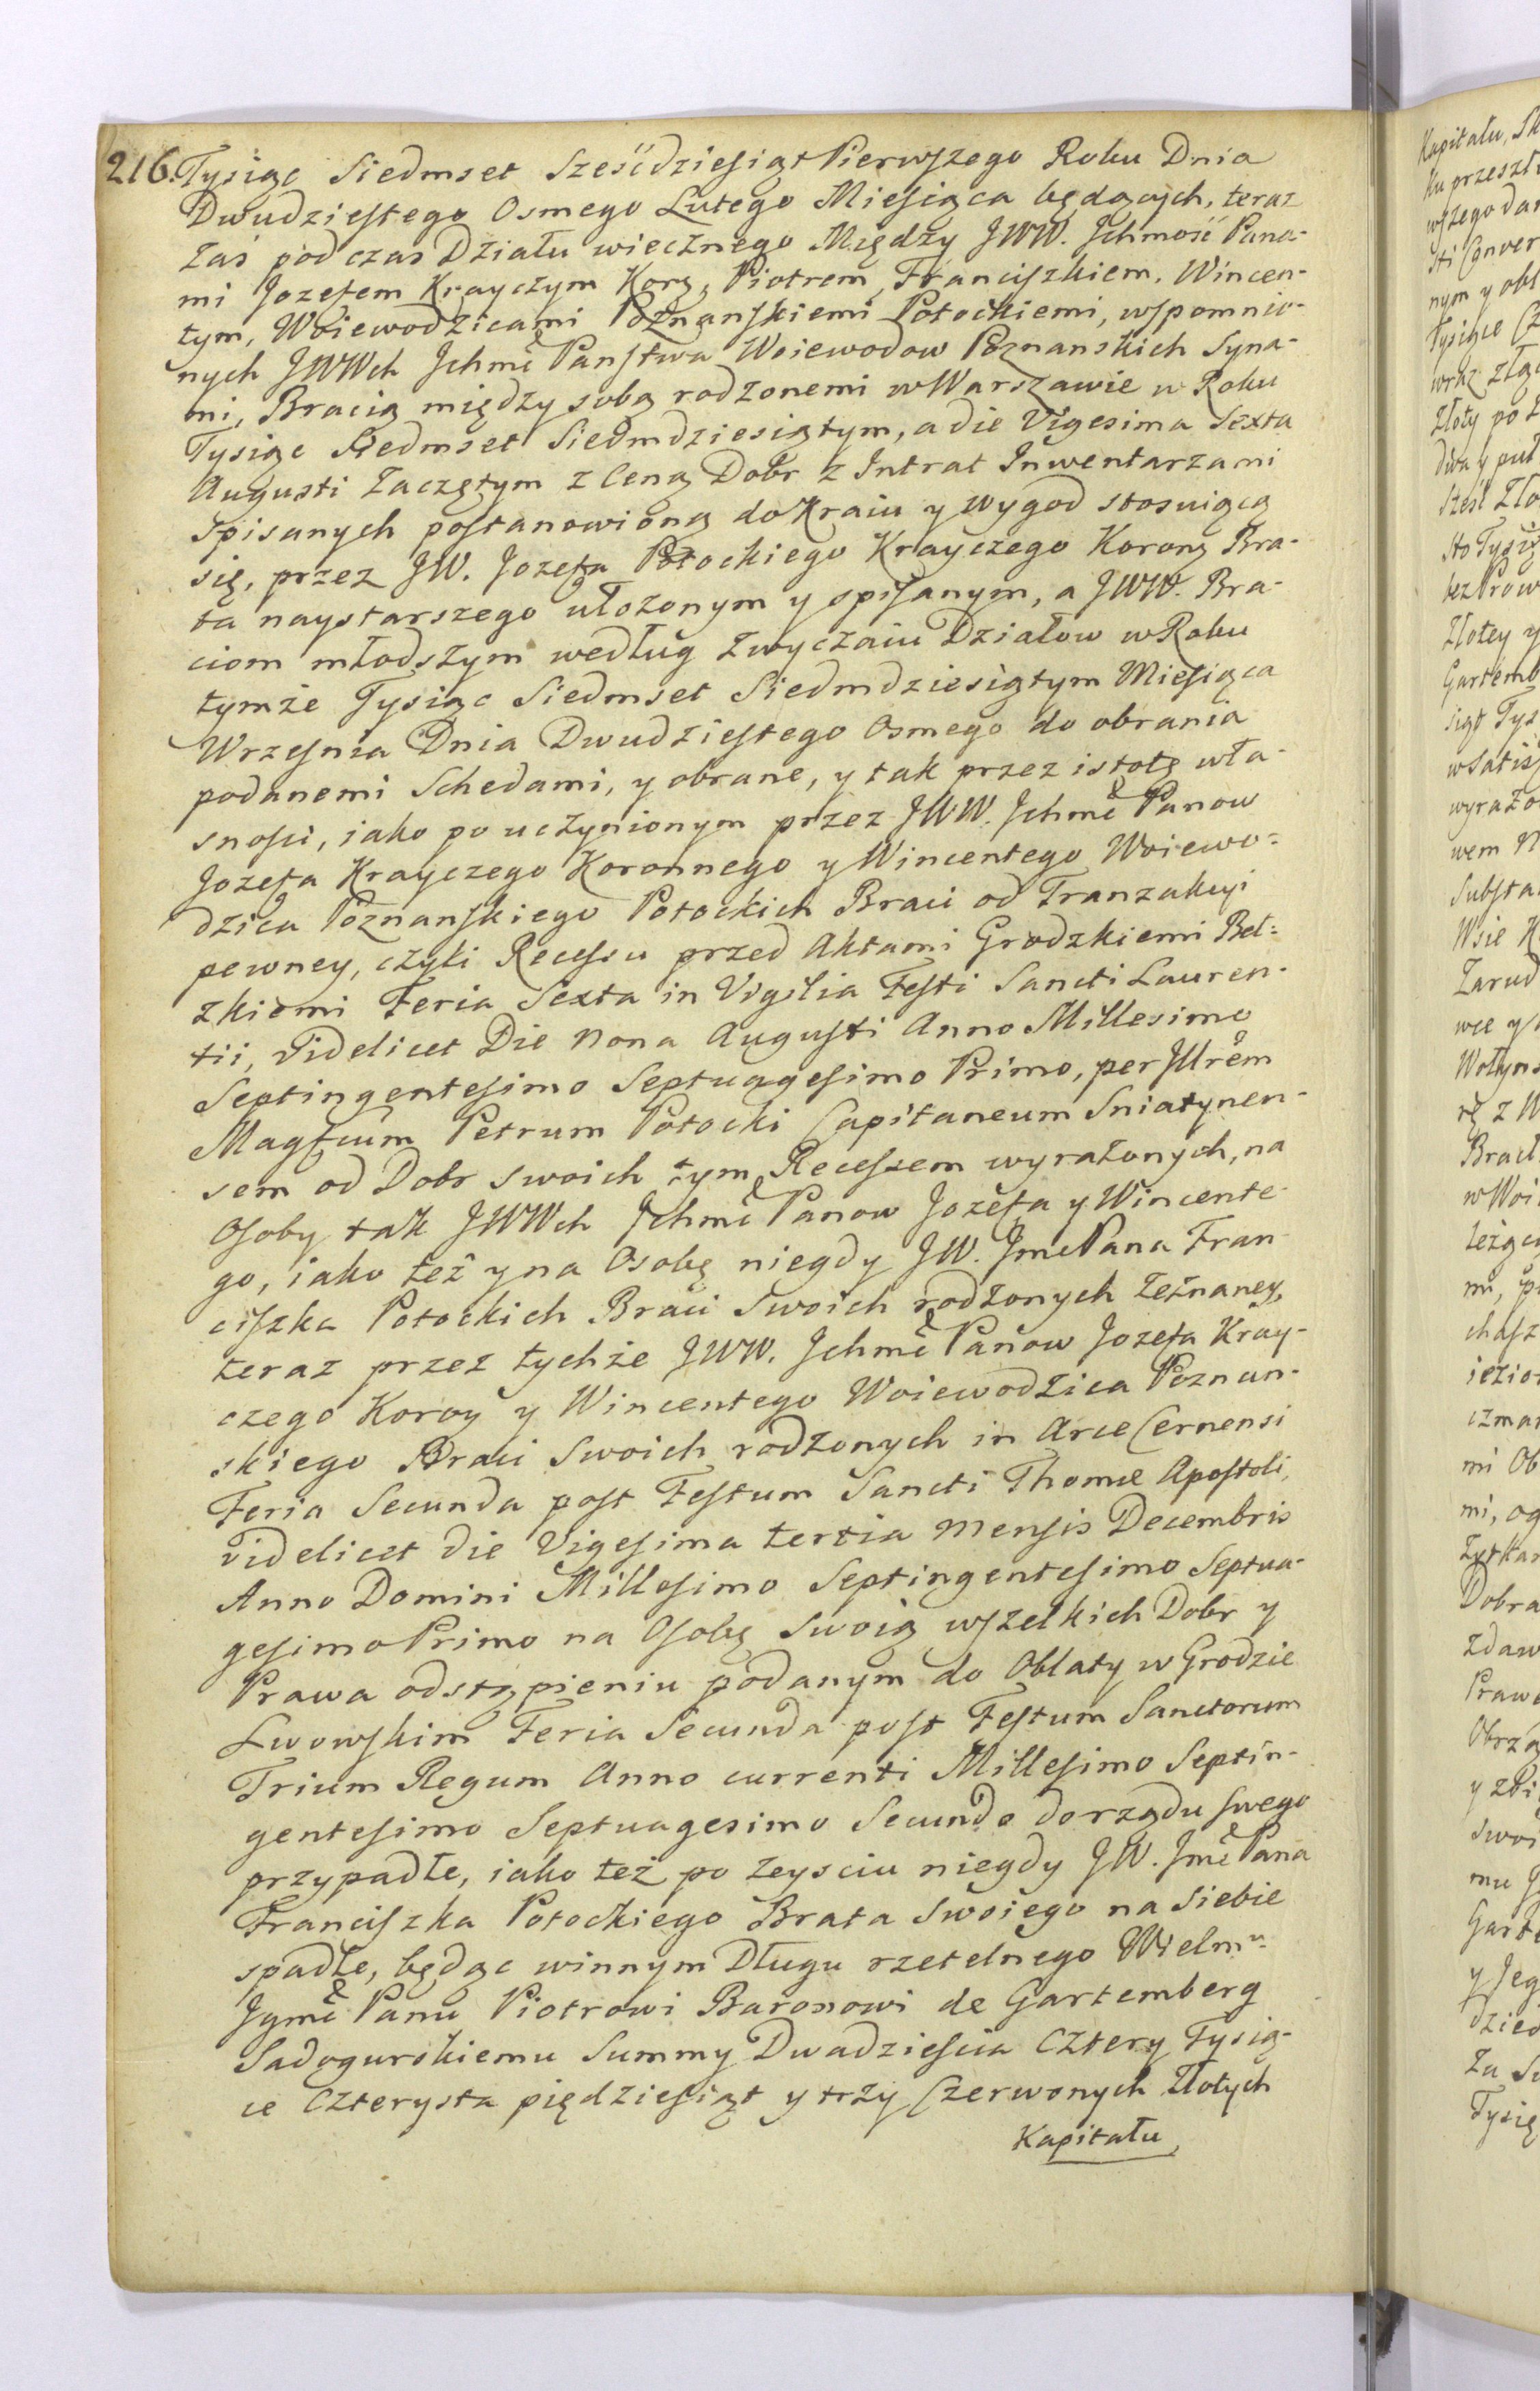 216. Tysiąc Siedmset Sześćdziesiąt Pierwszego Roku Dnia
Dwudziestego Osmego Lutego Miesiąca będących, teraz
zaś pod czas Działu wiecznego Między JWW. Jchmość Pana-
mi Jozefem Krayczym Korą, Piotrem, Franciszkiem, Wincen-
tym, Woiewodzicami Poznanskiemi Potockiemi, wspomnio-
nych JWWch Jchmć Państwa Woiewodow Poznanskich Syna-
mi, Bracią między sobą rodzonemi w Warszawie w Roku
Tysiąc Siedmset Siedmdziesiątym, a die Vigesima Sexta
Augusti zaczętym z Ceną Dobr z Intrat Inwentarzami
spisanych postanowioną do Kraiu y wygod stosuiącą
się, przez JW. Jozefa Potockiego Krayczego Korong Bra-
ta naystarszego ułożonym y opisanym, a JWW. Bra-
ciom młodszym według zwyczaiu Działow w Roku
tymże Tysiąc Siedmset Siedmdziesiątym Miesiąca
Wrzesnia Dnia Dwudziestego Osmego do obrania
podanemi Schedami, y obrane, y tak przez istotę wła-
snosci, iako po uczynionym przez JWW. Jchmć Panow
Jozefa Krayczego Koronnego y Wincentego Woiewo-
dzica Poznanskiego Potockich Braci od Tranzakcyi
pewney, czyli Recessu przed Aktami Grodzkiemi Bel-
zkiemi Feria Sexta in Vigilia Festi Sancti Lauren-
tii, videlicet Die Nona Augusti Anno Millesimo
Septingentesimo Septuagesimo Primo, per Jllrem
Magfcum Petrum Potocki Capitaneum Sniatynen-
sem od Dobr swoich tym Recessem wyrażonych, na
Osoby tak JWWch Jchmć Panow Jozefa y Wincente-
go, iako też y na Osobę niegdy JW. Jmć Pana Fran-
ciszka Potockich Braci Swoich rodzonych zeznaney,
teraz przez tychże JWW. Jchmć Panow Jozefa Kray-
czego Korong y Wincentego Woiewodzica Poznan-
skiego Braci Swoich rodzonych in Arce Cernensi
Feria Secunda post Festum Sancti Thomæ Apostoli,
videlicet die Vigesima tertia Mensis Decembris
Anno Domini Millesimo Septingentesimo Septua-
gesimo Primo na Osobę Swoią wszelkich Dobr y
Prawa odstąpieniu podanym do Oblaty w Grodzie
Lwowskim Feria Secunda post Festum Sanctorum
Trium Regum Anno currenti Millesimo Septin-
gentesimo Septuagesimo Secundo do rządu swego
przypadłe, iako też po zeysciu niegdy JW. Jmć Pana
Franciszka Potockiego Brata Swoiego na siebie
spadłe, będąc winnym Długu rzetelnego Wielmu
Jgmć Panu Piotrowi Baronowi de Gartemberg
Sadogurskiemu Summy Dwadziescia Cztery Tysią-
ce Czterysta pięddziesiąt y trzy Czerwonych Złotych
Kapitału,